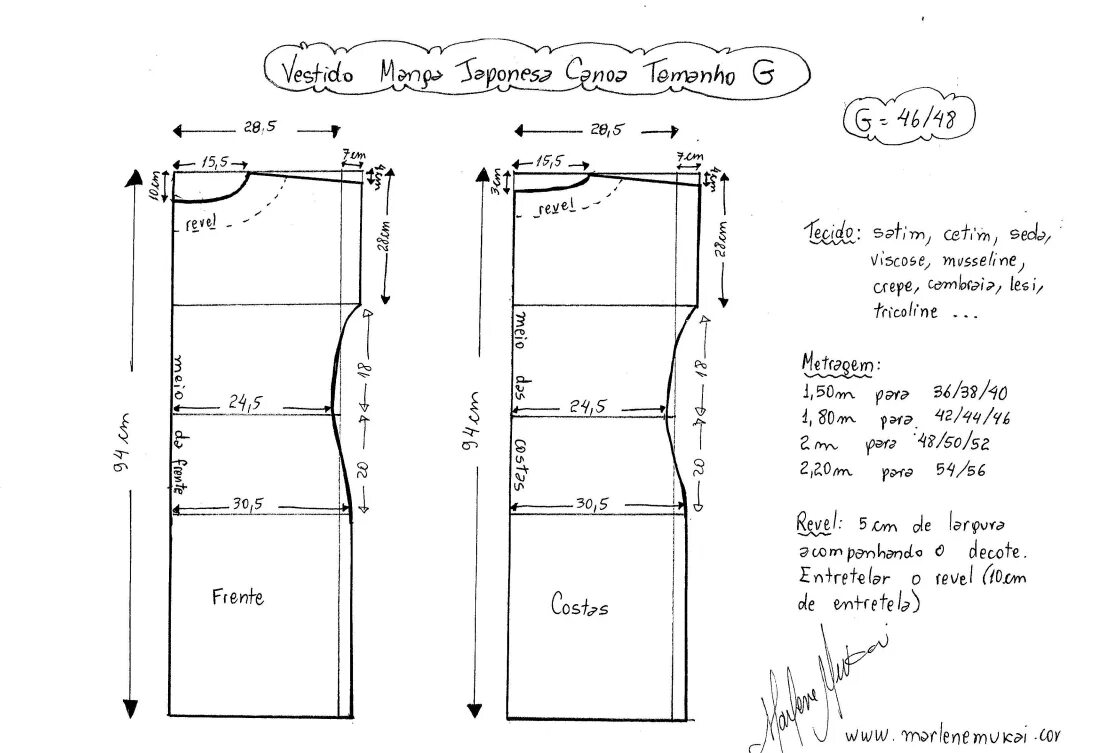 Vestido Manga Japonesa Canoa Tamanho G
G = 46/48
28,5
15,5
7cm
4cm
10cm
revel
28cm
meio da frente
18
24,5
20
94cm
30,5
Frente
28,5
15,5
7cm
4cm
3cm
revel
28cm
meio das costas
18
24,5
20
94cm
30,5
Costas
Tecido: satim, cetim, seda,
viscose, musseline,
crepe, cambraia, lesi,
tricoline ...
Metragem:
1,50m para 36/38/40
1,80m para 42/44/46
2m para 48/50/52
2,20m para 54/56
Revel: 5cm de largura
acompanhando o decote.
Entretelar o revel (10cm
de entretela)
Marlene Mukai
www.marlenemukai.cor